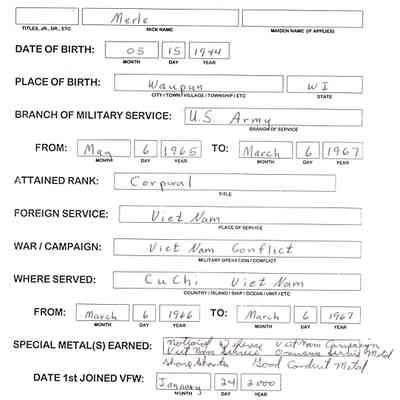 Merle
TITLES, JR., SR., ETC. NICK NAME MAIDEN NAME (IF APPLIES)
DATE OF BIRTH: 05 15 1944
MONTH DAY YEAR
PLACE OF BIRTH: Waupun WI
CITY / TOWN / VILLAGE / TOWNSHIP / ETC STATE
BRANCH OF MILITARY SERVICE: U.S. Army
BRANCH OF SERVICE
FROM: May 6 1965 TO: March 6 1967
MONTH DAY YEAR MONTH DAY YEAR
ATTAINED RANK: Corporal
TITLE
FOREIGN SERVICE: Viet Nam
PLACE OF SERVICE
WAR / CAMPAIGN: Viet Nam Conflict
MILITARY OPERATION / CONFLICT
WHERE SERVED: Cu Chi Viet Nam
COUNTRY / ISLAND / SHIP / OCEAN / UNIT / ETC
FROM: March 6 1966 TO: March 6 1967
MONTH DAY YEAR MONTH DAY YEAR
SPECIAL METAL(S) EARNED: National Defense Viet Nam Campaign
Viet Nam Service Service Metal
Good Conduct Metal
DATE 1st JOINED VFW: January 24 2000
MONTH DAY YEAR